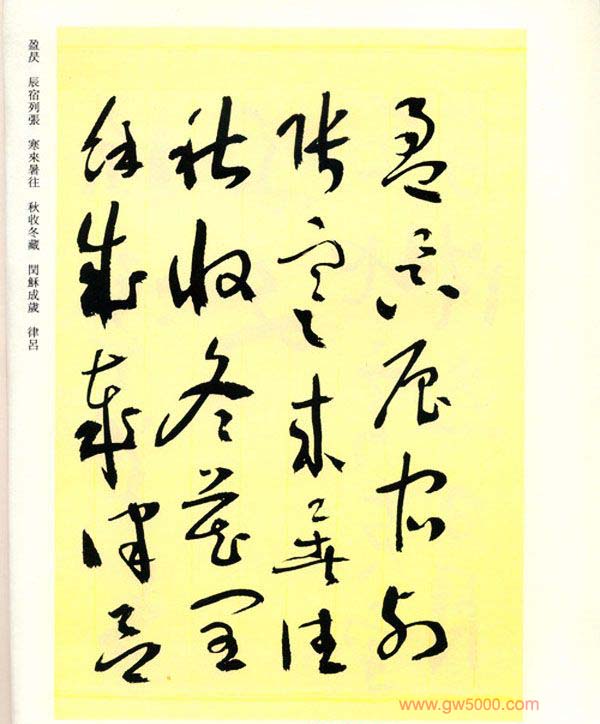 盈昃辰宿列
張寒來暑往
秋收冬藏閏
餘成歲律呂
盈昃　辰宿列張　寒來暑往　秋收冬藏　閏穌成歲　律呂
www.gw5000.com